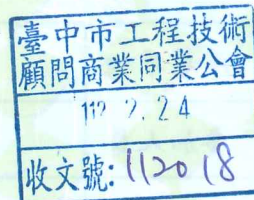 臺中市工程技術
顧問商業同業公會
112. 2. 24
收文號: 112018